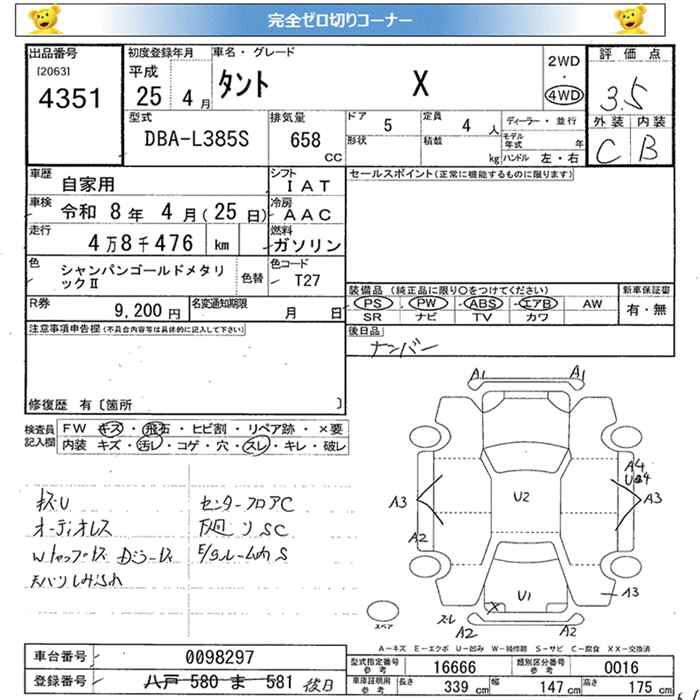 完全ゼロ切りコーナー
出品番号 初度登録年月 車名・グレード 2WD 評価点
[2063] 平成 タント X ・
4351 25 4月 4WD 3.5
型式 排気量 ドア 5 定員 4人 ディーラー・並行 外装 内装
DBA-L385S 658 CC 形状 積載 kg モデル年式 年 C B
ハンドル 左・右
車歴 自家用 シフト IAT セールスポイント(正常に機能するものに限ります)
車検 令和 8年 4月(25日) 冷房 AAC
走行 4万8千476 km 燃料 ガソリン
色 シャンパンゴールドメタリックⅡ 色替 色コード T27
装備品 (純正品に限り○をつけてください) 新車保証書
R券 9,200円 名変通知期限 月 日 PS・PW・ABS・エアB AW 有・無
SR ナビ TV カワ
注意事項申告欄(不具合内容等は具体的に記入して下さい) 後日品
ナンバー
修復歴 有〔箇所 〕
検査員記入欄 FW キズ・飛石・ヒビ割・リペア跡・×要
内装 キズ・汚レ・コゲ・穴・スレ・キレ・破レ
A1 A1
A4
U2 A3 A3
A2
U1 A3
X
A2 A2
スペア
キズU センターフロアC
オーディオレス 下廻りSC
E/gルーム内S
天バリしみ
A-キズ E-エクボ U-凹み W-補修跡 S-サビ C-腐食 XX-交換済
車台番号 0098297 型式指定番号 参考 16666 類別区分番号 参考 0016
登録番号 八戸 580 ま 581 後日 車庫証明用 参考 長さ 339cm 幅 147cm 高さ 175cm